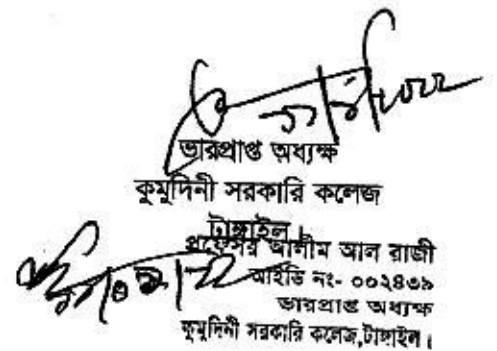 ভারপ্রাপ্ত অধ্যক্ষ
কুমুদিনী সরকারি কলেজ
টাঙ্গাইল।
প্রফেসর আলীম আল রাজী
আইডি নং- ০০২৪৩৯
ভারপ্রাপ্ত অধ্যক্ষ
কুমুদিনী সরকারি কলেজ,টাঙ্গাইল।